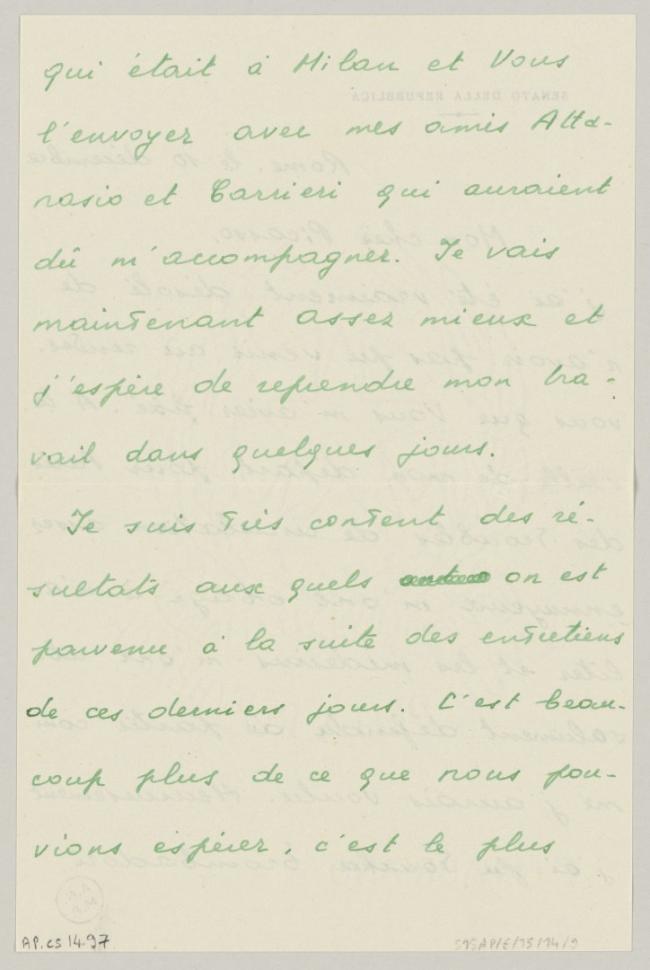 qui était à Milan et Vous
l'envoyer avec mes amis Atta-
nasio et Carrieri qui auraient
dû m'accompagner. Je vais
maintenant assez mieux et
j'espère de reprendre mon tra-
vail dans quelques jours.
Je suis très content des ré-
sultats aux quels on est
parvenu à la suite des entretiens
de ces derniers jours. C'est beau-
coup plus de ce que nous pou-
vions espérer, c'est le plus
AP.CS 1497